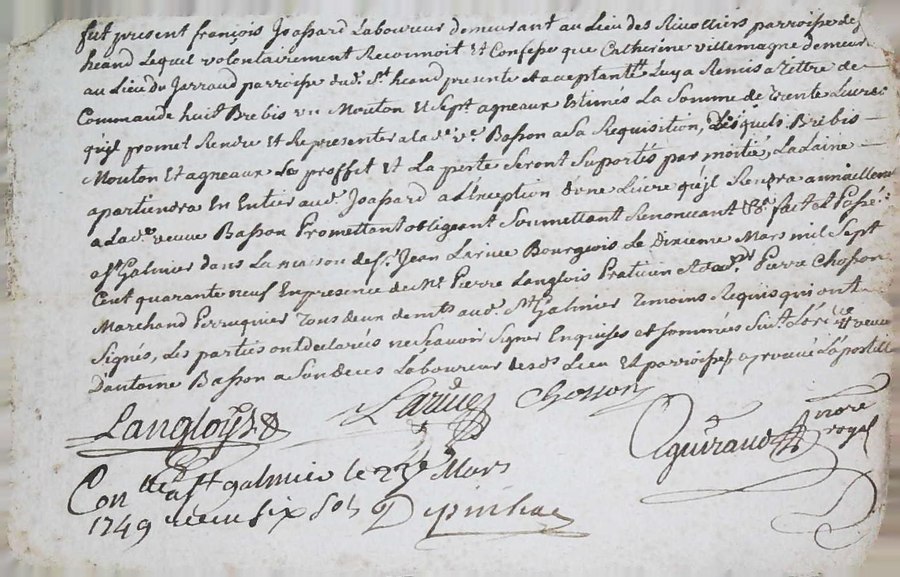 fut present françois Joassard Laboureur demeurant au Lieu des Ricolliers parroisse de St
heand Lequel volontairement Reconnoit Et Confesse que Catherine villemagne demeurt
au Lieu du Jarraud parroisse dudt St heand presente et acceptantte Luy a Remis a tittre de
Commande huit Brebis un Mouton Et Sept agneaux Estimés La Somme de trente Livres
qu'jl promet Rendre Et Representer a lade ve Basson a Sa Requisition, Lesquels Brebis
Mouton Et agneaux Le proffit Et La perte Seront Suportés par moitié, La Laine
apartiendra En Entier audt Joassard a L'Exception d'une Livre qu'jl Rendra annuellemt
a lade veuve Basson Promettant obligeant Soumettant Renoncant &a fait et Passé
a St Galmier dans La maison de Sr Jean Larüe Bourgeois Le Dixieme Mars mil Sept
Cent quarante neuf En presence de Me Pierre Langlois Praticien Et de Sr Pierre Chosson
Marchand Perruquier tous deux demts audt St Galmier temoins Requis qui ont
Signés, Les parties ont declarées ne Scavoir Signer Enquises et Sommées Suivt L'ordce # veuve
D'antoine Basson a Son deces Laboureur desds Lieu Et parroisse aprouvé L'apostille
Langloys Larüe Chosson
Oguiraud nore royal
Con lle a St galmier le 22e Mars
1749 recu six sols Depinhac